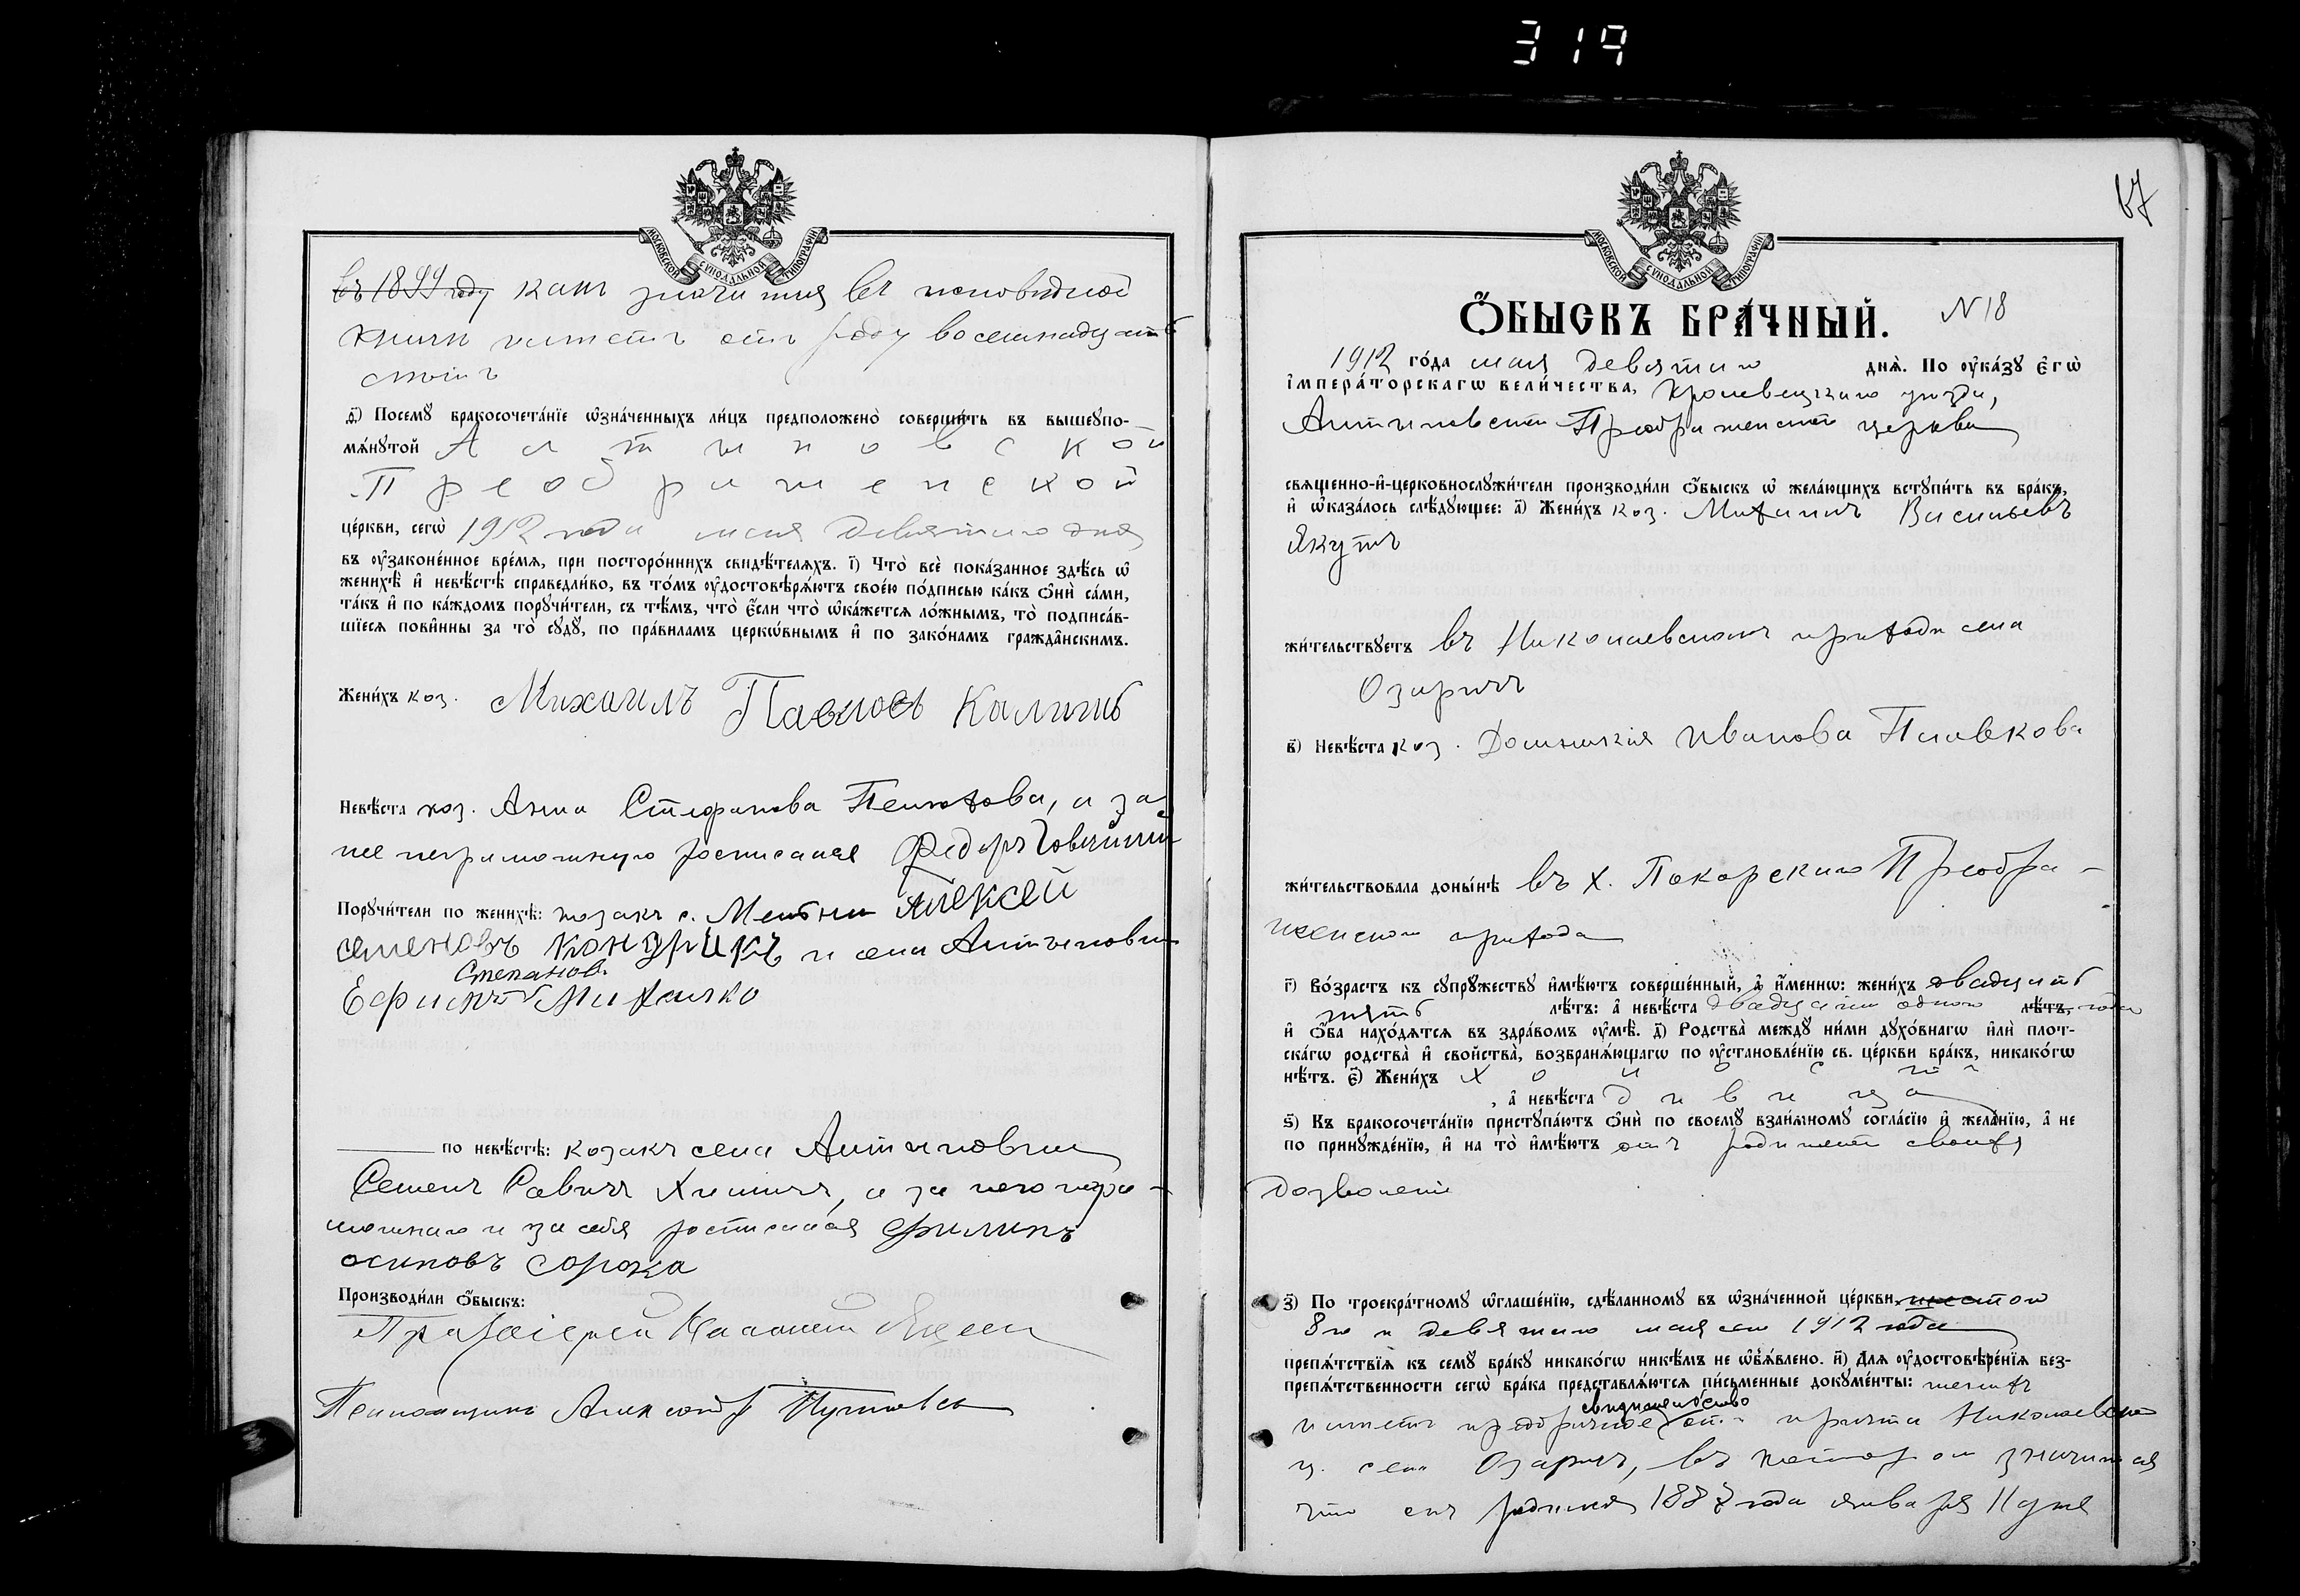 319
МОСКОВСКОЙ СѴНОДАЛЬНОЙ ТИПОГРАФІИ
въ 1899 году какъ значится въ исповѣдной
книги имѣетъ отъ роду восемнадцать
лѣтъ
д҃) Посемꙋ бракосочета́нїе ѡ҆зна́ченныхъ ли́цъ предположено̀ соверши́ть въ вышеꙋпо-
мѧ́нꙋтой Алтыновской
Преображенской
це́ркви, сегѡ̀ 1912 года мая девятаго дня
въ ᲂу҆законе́нное вре́мѧ, при посторо́ннихъ свидѣ́телѧхъ. і҃) Что̀ всѐ пока́занное здѣ́сь ѡ҆
женихѣ̀ и҆ невѣ́стѣ справедли́во, въ то́мъ ᲂу҆достовѣрѧ́ютъ свое́ю по́дписью ка́къ ѻ҆нѝ са́ми,
та́къ и҆ по ка́ждомъ порꙋчи́тели, съ тѣ́мъ, что̀ є҆́сли что̀ ѡ҆ка́жетсѧ ло́жнымъ, то̀ подписа́в-
шїесѧ пови́нны за то̀ сꙋдꙋ̀, по пра́виламъ церкѡ́внымъ и҆ по зако́намъ гражда́нскимъ.
Жени́хъ коз. Михаилъ Павловъ Калишъ
Невѣ́ста коз. Анна Стефанова Пелюхова, а за
нее неграмотную росписался Федоръ
Порꙋчи́тели по женихѣ̀: козакъ с. Мельни Алексей
семеновъ и села Алтыновки
Степановъ
Ефимъ Михалко
по невѣ́стѣ: козакъ села Алтыновки
Семенъ Савинъ Химичъ, а за него негра-
мотнаго и за себя росписался Филипъ
осиповъ сорока
Производи́ли ѻ҆́быскъ:
Протоіерей
Псаломщикъ Александръ
67
МОСКОВСКОЙ СѴНОДАЛЬНОЙ ТИПОГРАФІИ
Ѻ҆́БЫСКЪ БРА́ЧНЫЙ. N 18
1912 го́да мая девятаго днѧ̀. По ᲂу҆ка́зꙋ є҆гѡ̀
і҆мпера́торскагѡ вели́чества, Кролевецкаго уѣзда,
Алтыновской Преображенской церкви
свѧщенно-и҆-церковнослꙋжи́тели производи́ли ѻ҆́быскъ ѡ҆ жела́ющихъ встꙋпи́ть въ бра́къ,
и҆ ѡ҆каза́лось слѣ́дꙋющее: а҃) Жени́хъ коз. Михаилъ Васильевъ
Якутъ
жи́тельствꙋетъ въ Николаевскомъ приходѣ села
Озаричъ
в҃) Невѣ́ста коз. Домникія Иванова Пливкова
жи́тельствовала доны́нѣ въ х. Пекарскаго Преобра-
женскаго прихода
г҃) Во́зрастъ къ сꙋпрꙋ́жествꙋ и҆мѣ́ютъ соверше́нный, а҆ и҆́менно: жени́хъ двадцать
пять лѣ́тъ: а҆ невѣ́ста двадцати одного лѣ́тъ, года
и҆ ѻ҆́ба нахо́дѧтсѧ въ здра́вомъ ᲂу҆мѣ̀. д҃) Родства̀ междꙋ ни́ми дꙋхо́внагѡ и҆лѝ плот-
ска́гѡ родства̀ и҆ свойства̀, возбранѧ́ющагѡ по ᲂу҆становле́нїю св. це́ркви бра́къ, никако́гѡ
нѣ́тъ. є҃) Жени́хъ холостъ
, а҆ невѣ́ста дѣвица
ѕ҃) Къ бракосочета́нїю пристꙋпа́ютъ ѻ҆нѝ по своемꙋ̀ взаи́мномꙋ согла́сїю и҆ жела́нїю, а҆ не
по принꙋжде́нїю, и҆ на то̀ и҆мѣ́ютъ отъ родителей своихъ
дозволеніе
з҃) По троекра́тномꙋ ѡ҆глаше́нїю, сдѣ́ланномꙋ въ ѡ҆зна́ченной це́ркви,
8го и девятаго мая сего 1912 года
препѧ́тствїѧ къ семꙋ̀ бра́кꙋ никако́гѡ никѣ́мъ не ѡ҆бъѧ́влено. и҃) Длѧ ᲂу҆достовѣре́нїѧ без-
препѧ́тственности сегѡ̀ бра́ка представлѧ́ютсѧ пи́сьменные докꙋме́нты: женихъ
свидѣтельство
имѣетъ предбрачное отъ причта Николаевской
ц. села Озаричъ, въ которомъ значится
что онъ родился 1887 года января 11 дня